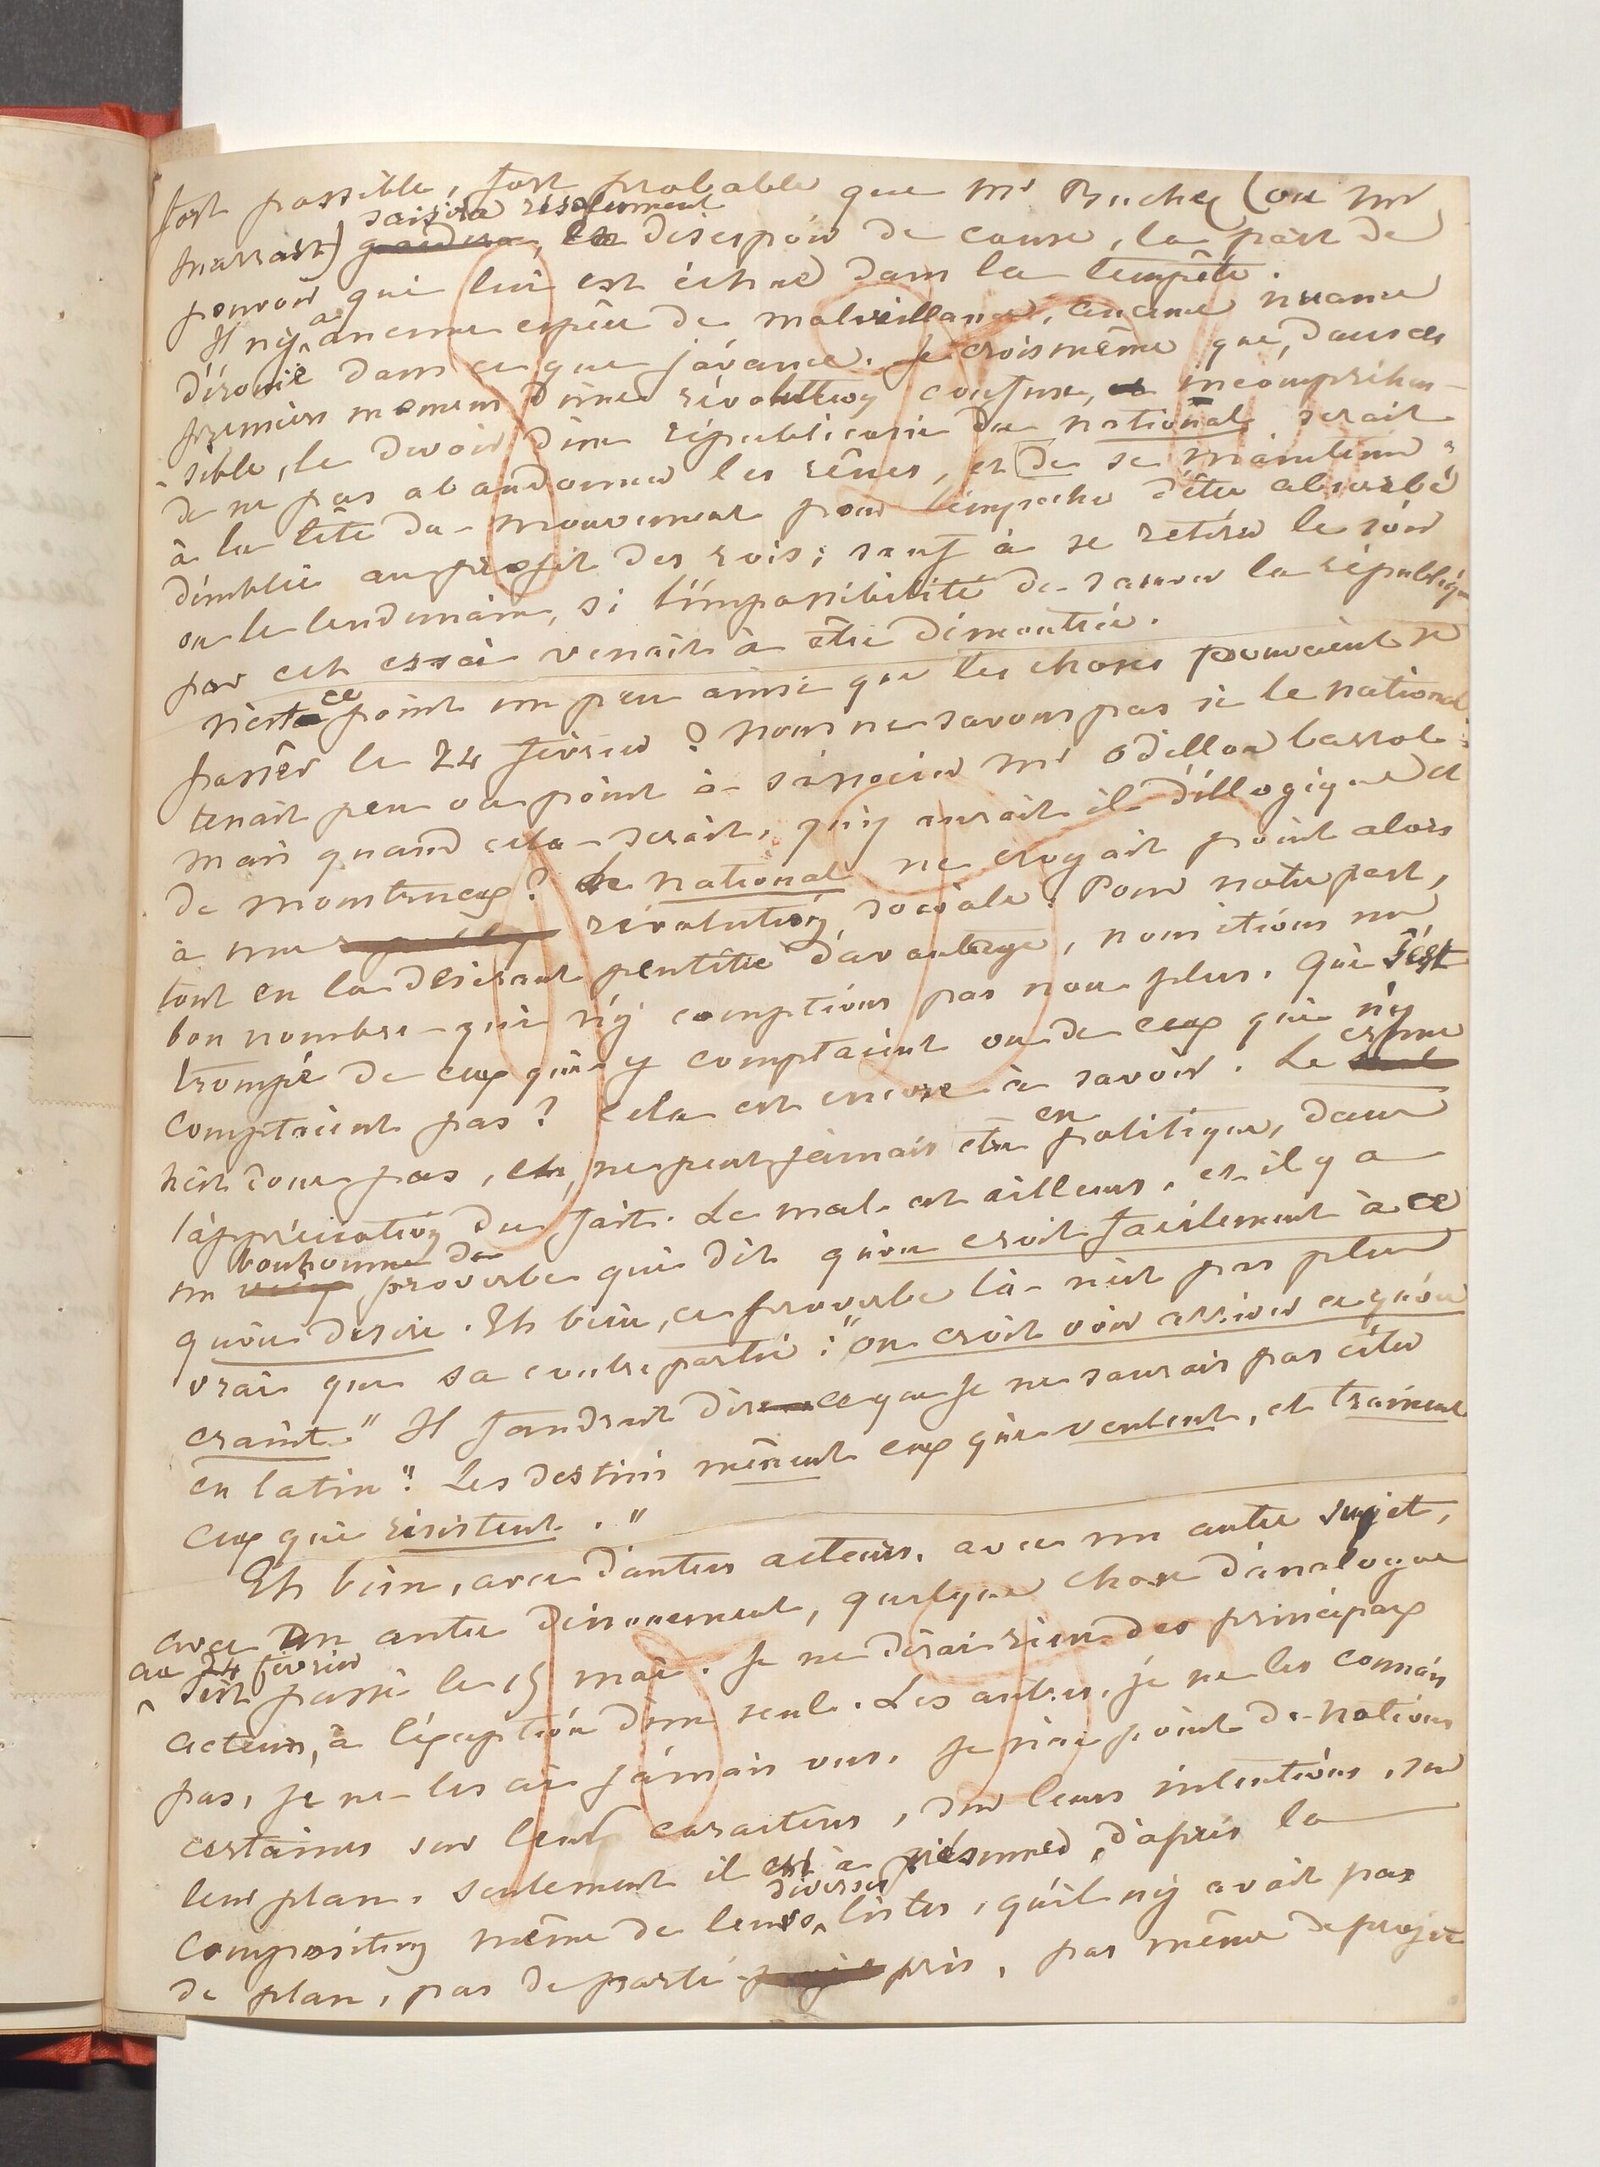 fort possible, fort probable que Mr Buchez (ou Mr
saisira résolument
Marrast) gardera, en désespoir de cause, la part de
pouvoir qui lui est échue dans la tempête.
Il n'y a aucune espèce de malveillance, aucune nuance
d'ironie dans ce que j'avance. Je crois même que, dans ces
premiers momens d'une révolution confuse, et incompréhen-
-sible, le devoir d'un républicain du National serait
de ne pas abandonner les rênes, et de se maintenir
à la tête du mouvement pour l'empêcher d'être absorbé
d'emblée au profit des rois; sauf à se retirer le soir
ou le lendemain, si l'impossibilité de sauver la république
par cet essai venait à être démontrée.
N'est ce point un peu ainsi que les choses pouvaient se
passer le 24 février? Nous ne savons pas si le National
tenait peu ou point à s'associer Mr Odillon barrot.
Mais quand cela serait, qu'y aurait il d'illogique et
de monstrueux? Le National ne croyait point alors
à une révolution sociale. Pour notre part,
tout en la désirant peutêtre davantage, nous étions un
bon nombre qui n'y comptions pas non plus. Qui s'est
trompé de ceux qui y comptaient ou de ceux qui n'y
comptaient pas? Cela est encore à savoir. Le crime
n'est donc pas, et ne peut jamais être en politique, dans
l'appréciation du fait. Le mal est ailleurs, et il y a
bonhomme de
un vieux proverbe qui dit qu'on croit facilement à ce
qu'on desire. Eh bien, ce proverbe là n'est pas plus
vrai que sa contrepartie: "on croit voir arriver ce qu'on
craint." Il faudrait dire ce que je ne saurais pas citer
en latin": Les destins mènent ceux qui veulent, et trainent
ceux qui résistent."
Eh bien, avec d'autres acteurs, avec un autre sujet,
avec un autre dénouement, quelque chose d'analogue
au 24 février
s'est passé le 15 mai. Je ne dirai rien des principaux
acteurs, à l'exception d'un seul. Les autres, je ne les connais
pas, je ne les ai jamais vus, je n'ai point de notions
certaines sur leurs caractères, sur leurs intentions, sur
leur plan. Seulement il est à présumer, d'après la
diverses
composition même de leurs listes, qu'il n'y avait pas
de plan, pas de parti pris, pas même de projet